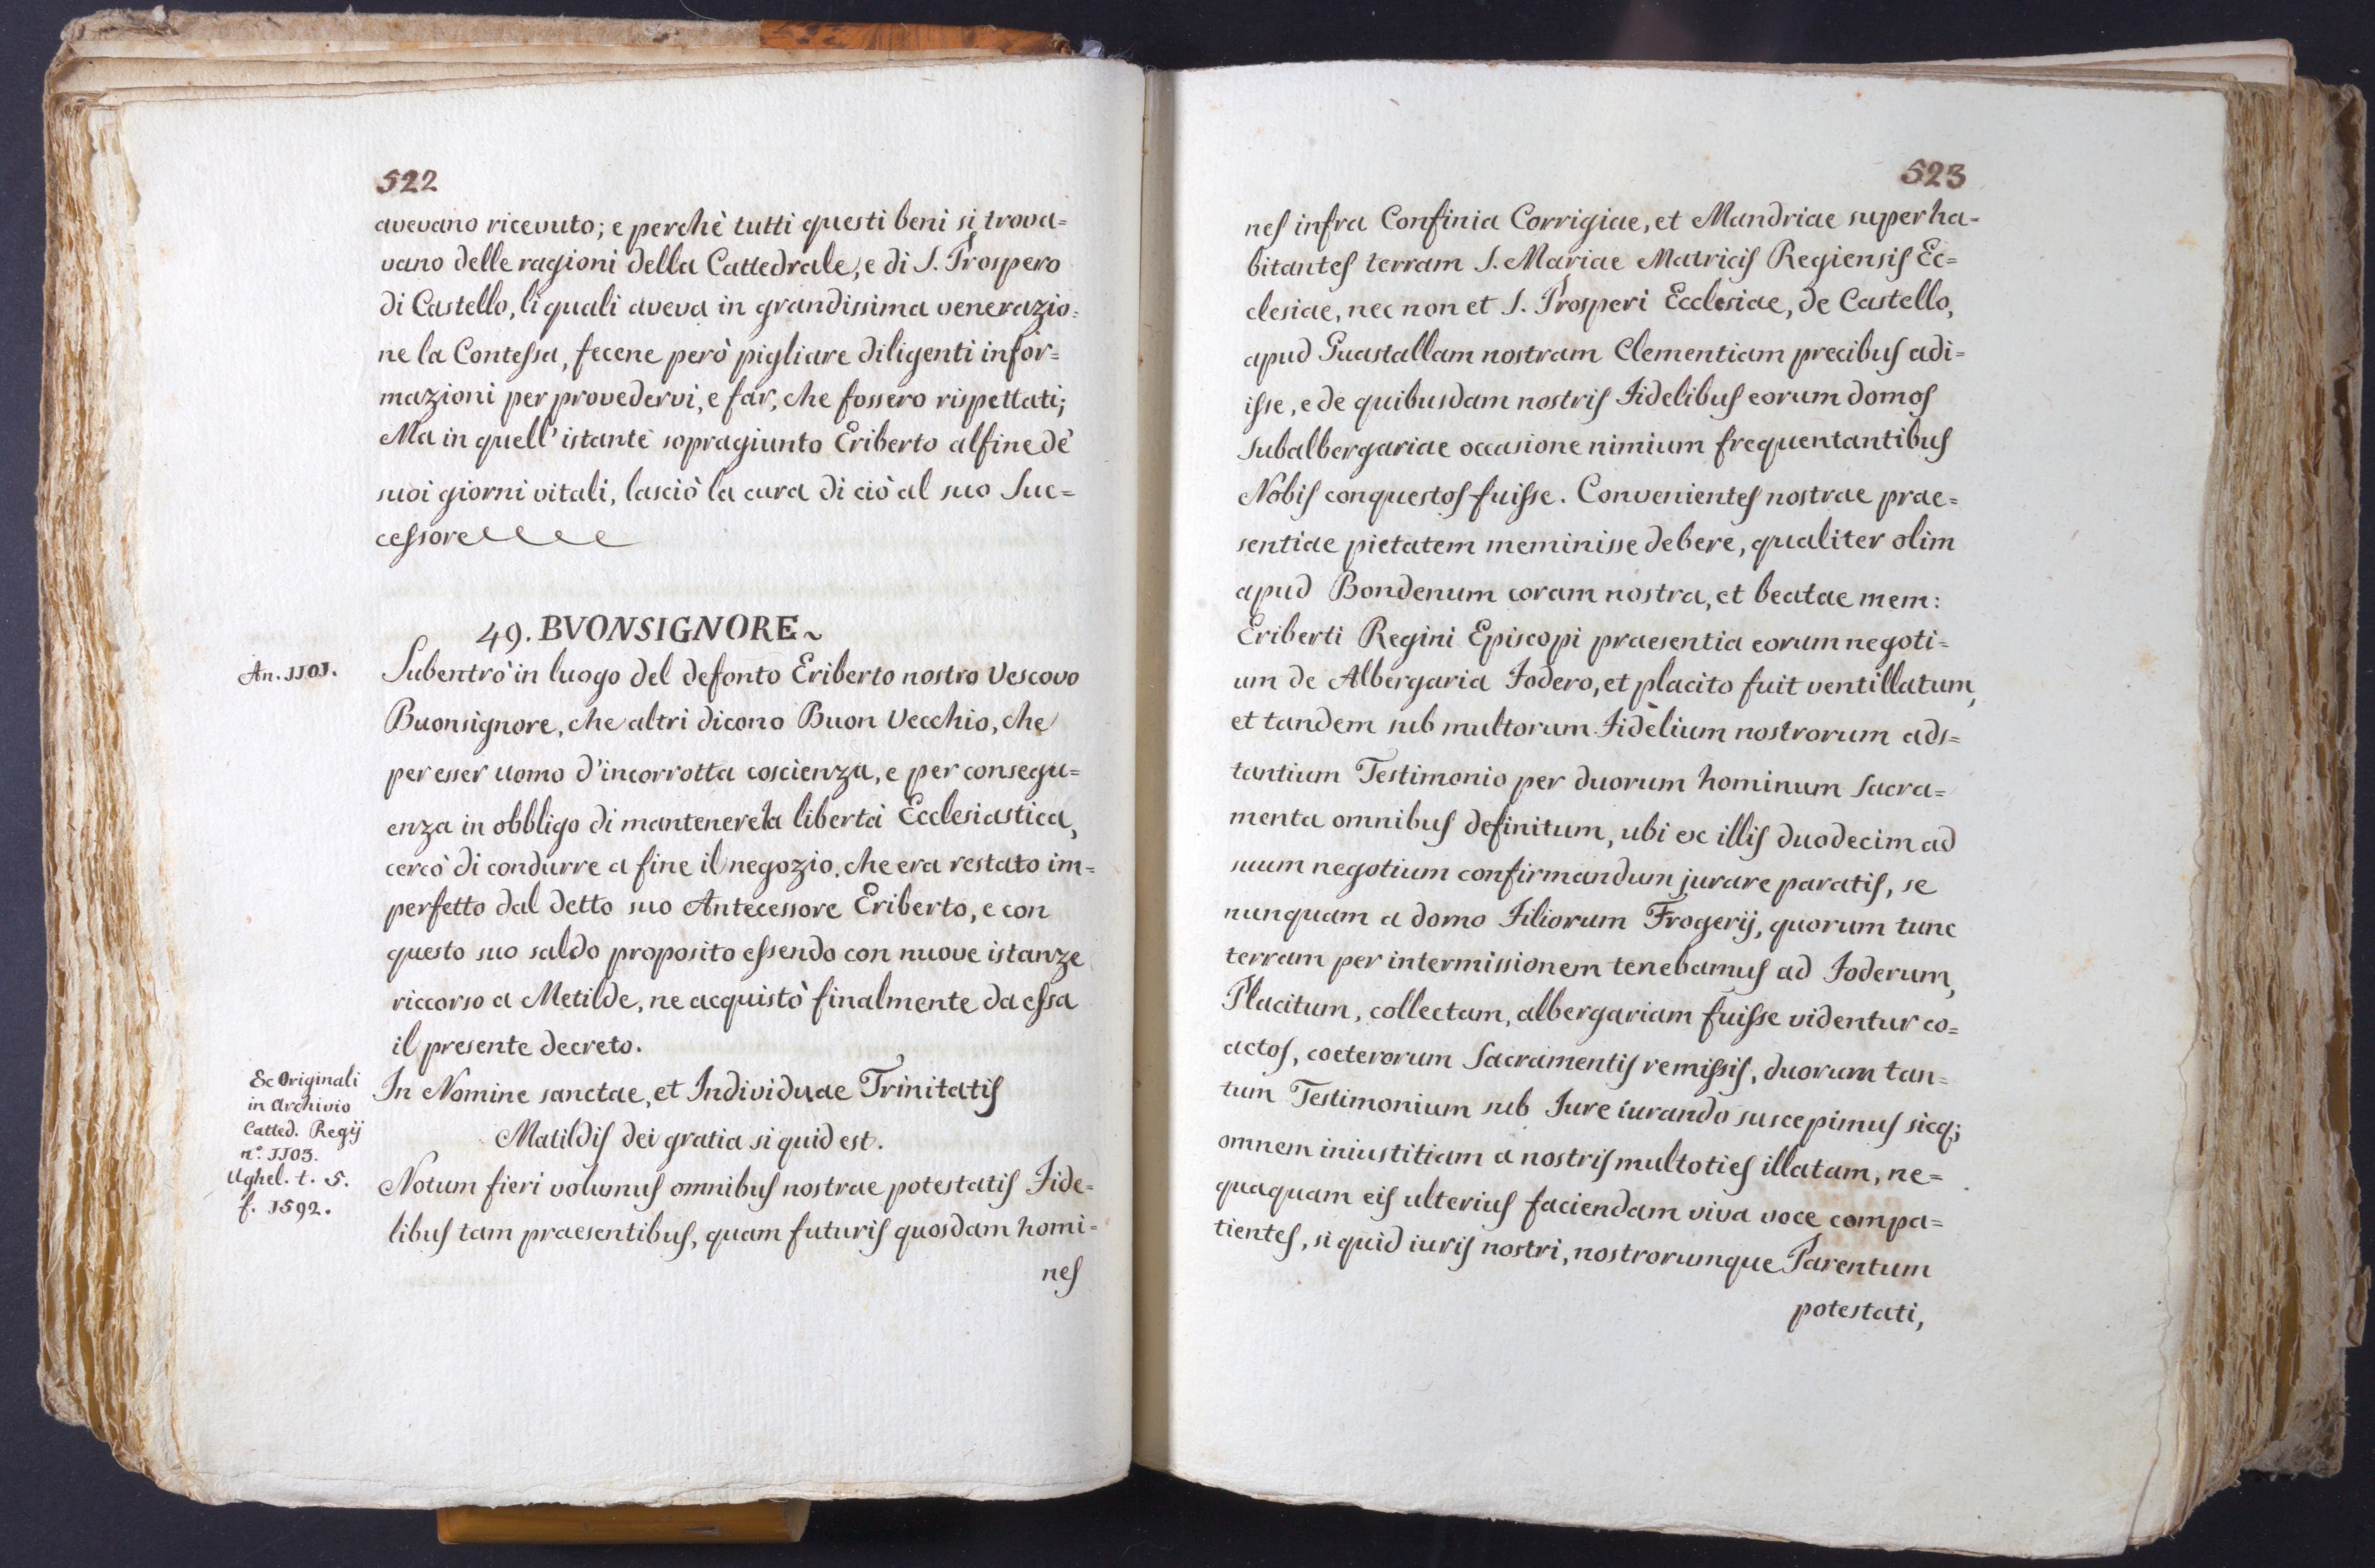 522
avevano ricevuto; e perchè tutti questi beni si trova=
vano delle ragioni della Cattedrale, e di S. Prospero
di Castello, li quali aveva in grandissima venerazio=
ne la Contessa, fecene però pigliare diligenti infor=
mazioni per provedervi, e far, che fossero rispettati;
Ma in quell' istante sopragiunto Eriberto alfine de'
suoi giorni vitali, lasciò la cura di ciò al suo Suc=
cessore
49. BVONSIGNORE~
An. 1101.
Subentrò in luogo del defonto Eriberto nostro Vescovo
Buonsignore, che altri dicono Buon Vecchio, che
per esser uomo d'incorrotta coscienza, e per consegu=
enza in obbligo di mantenere la libertà Ecclesiastica,
cercò di condurre a fine il negozio, che era restato im=
perfetto dal detto suo Antecessore Eriberto, e con
questo suo saldo proposito essendo con nuove istanze
riccorso a Metilde, ne acquistò finalmente da essa
il presente decreto.
Ex Originali
in Archivio
Catted. Regij
n.° 1103.
Ughel. t. 5.
f. 1592.
In Nomine sanctae, et Individuae Trinitatis
Matildis dei gratia si quid est.
Notum fieri volumus omnibus nostrae potestatis Fide=
libus tam praesentibus, quam futuris quosdam homi=
nes
523
nes infra Confinia Corrigiae, et Mandriae superha=
bitantes terram S. Mariae Matricis Regiensis Ec=
clesiae, nec non et S. Prosperi Ecclesiae, de Castello,
apud Guastallam nostram Clementiam precibus adi=
isse, e de quibusdam nostris Fidelibus eorum domos
subalbergariae occasione nimium frequentantibus
Nobis conquestos fuisse. Convenientes nostrae prae=
sentiae pietatem meminisse debere, qualiter olim
apud Bondenum coram nostra, et beatae mem:
Eriberti Regini Episcopi praesentia eorum negoti=
um de Albergaria Fodero, et placito fuit ventillatum,
et tandem sub multorum Fidelium nostrorum ads=
tantium Testimonio per duorum hominum Sacra=
menta omnibus definitum, ubi ex illis duodecim ad
suum negotium confirmandum jurare paratis, se
nunquam a domo Filiorum Frogerij, quorum tunc
terram per intermissionem tenebamus ad Foderum,
Placitum, collectam, albergariam fuisse videntur co=
actos, coeterorum Sacramentis remissis, duorum tan=
tum Testimonium sub Iure iurando suscepimus sicq;
omnem iniustitiam a nostris multoties illatam, ne=
quaquam eis ulterius faciendam viva voce compa=
tientes, si quid iuris nostri, nostrorumque Parentum
potestati,